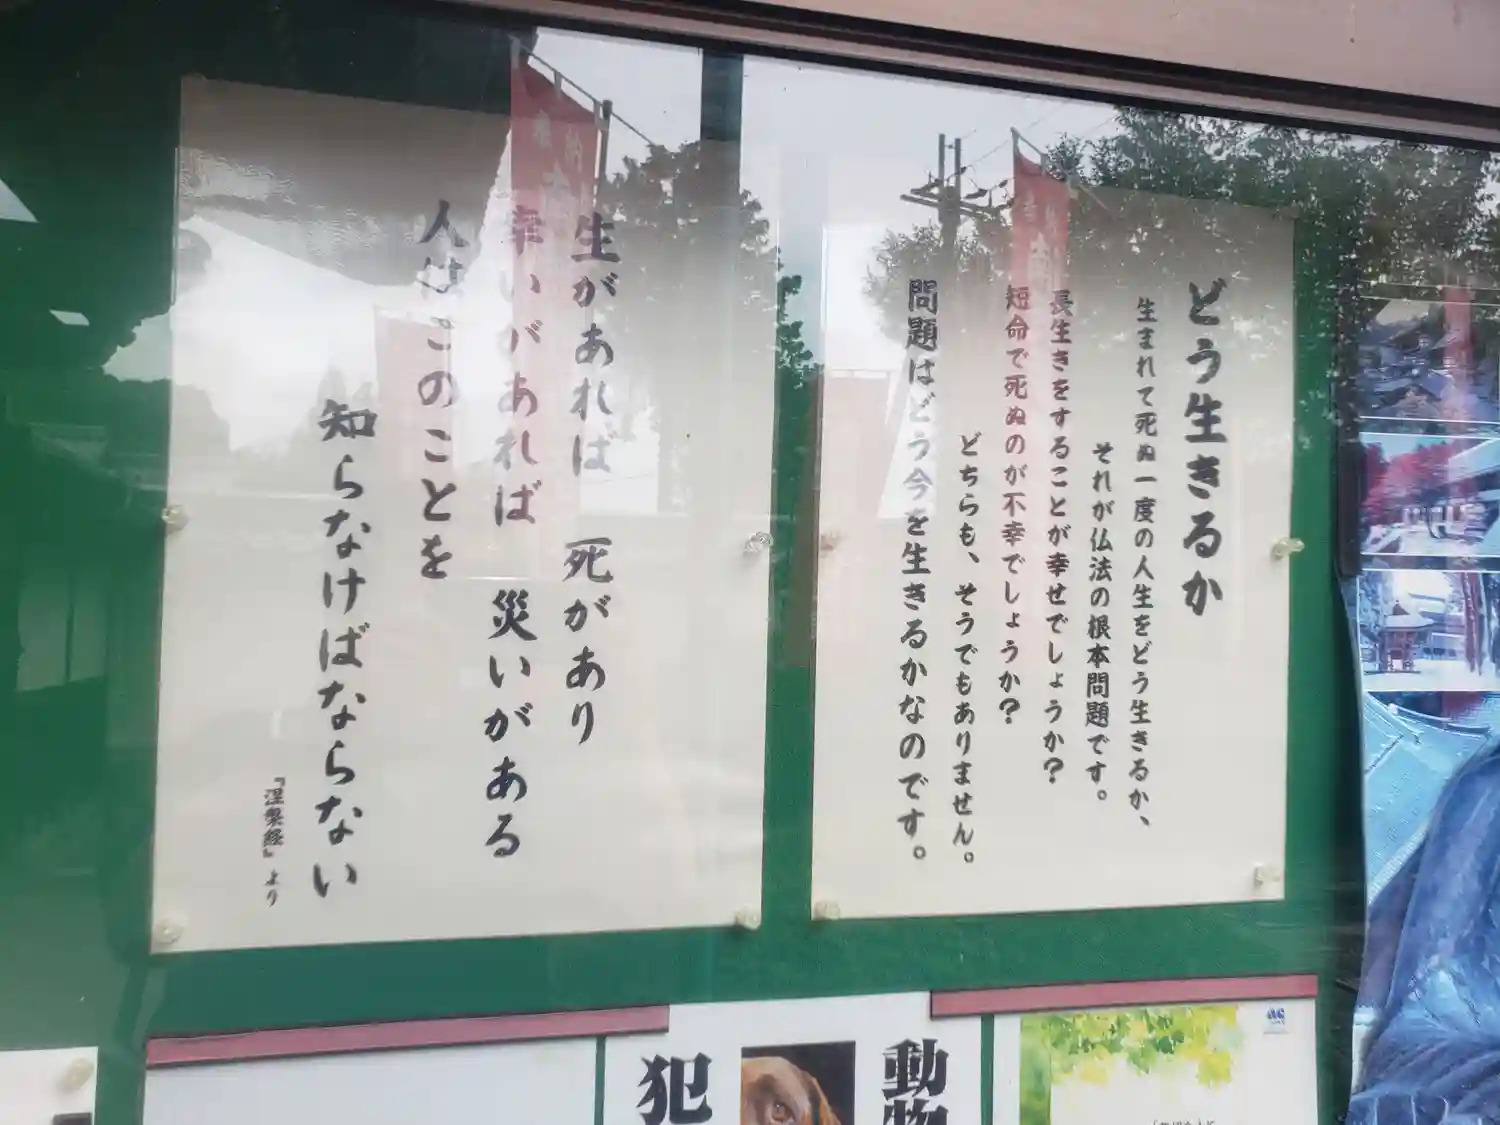 どう生きるか
生まれて死ぬ一度の人生をどう生きるか、
それが仏法の根本問題です。
長生きをすることが幸せでしょうか?
短命で死ぬのが不幸でしょうか?
どちらも、そうでもありません。
問題はどう今を生きるかなのです。
生があれば 死があり
幸いがあれば 災いがある
人はこのことを
知らなければならない
『涅槃経』より
動物
犯